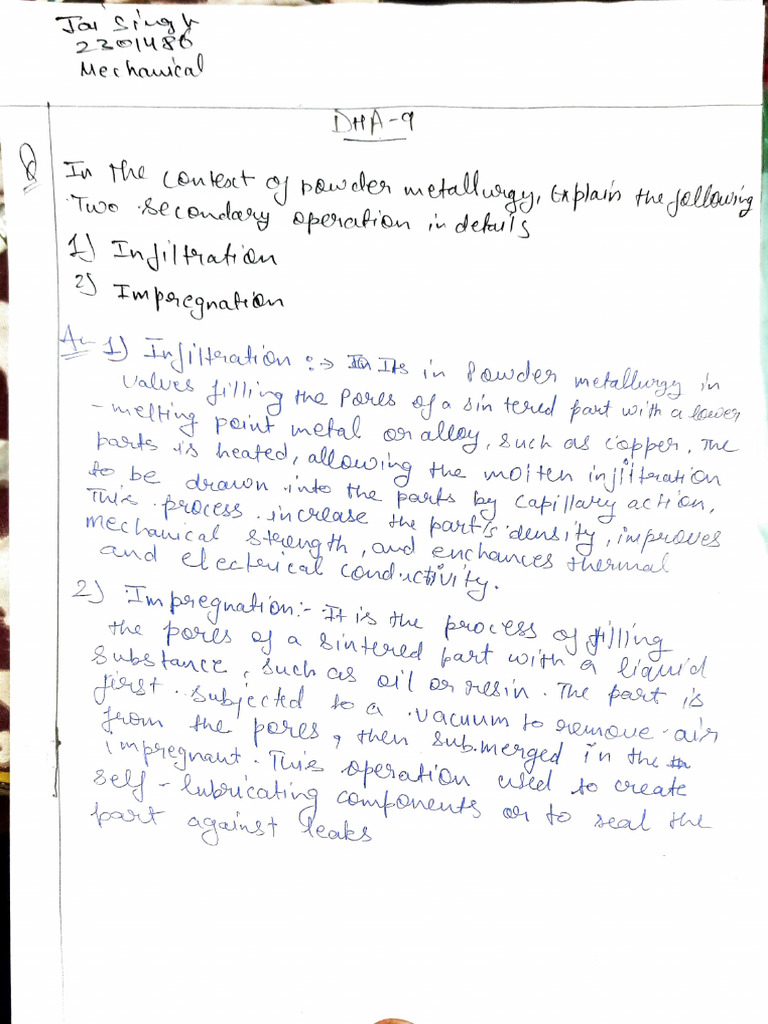 Jai Singh
2301486
Mechanical
DHA-9
Q In the context of powder metallurgy, Explain the following
Two secondary operation in details
1) Infiltration
2) Impregnation
A- 1) Infilteration :→ Its in Powder metallurgy in
valves filling the Pores of a sintered part with a lower
-melting point metal or alloy, such as copper. The
parts is heated, allowing the molten infiltration
to be drawn into the parts by capillary action,
This process increase the part's density, improves
mechanical strength, and enchances thermal
and electrical conductivity.
2) Impregnation:- It is the process of filling
the pores of a sintered part with a liquid
substance, such as oil or resin. The part is
first subjected to a vacuum to remove air
from the pores, then submerged in the
impregnant. This operation used to create
self-lubricating components or to seal the
part against leaks